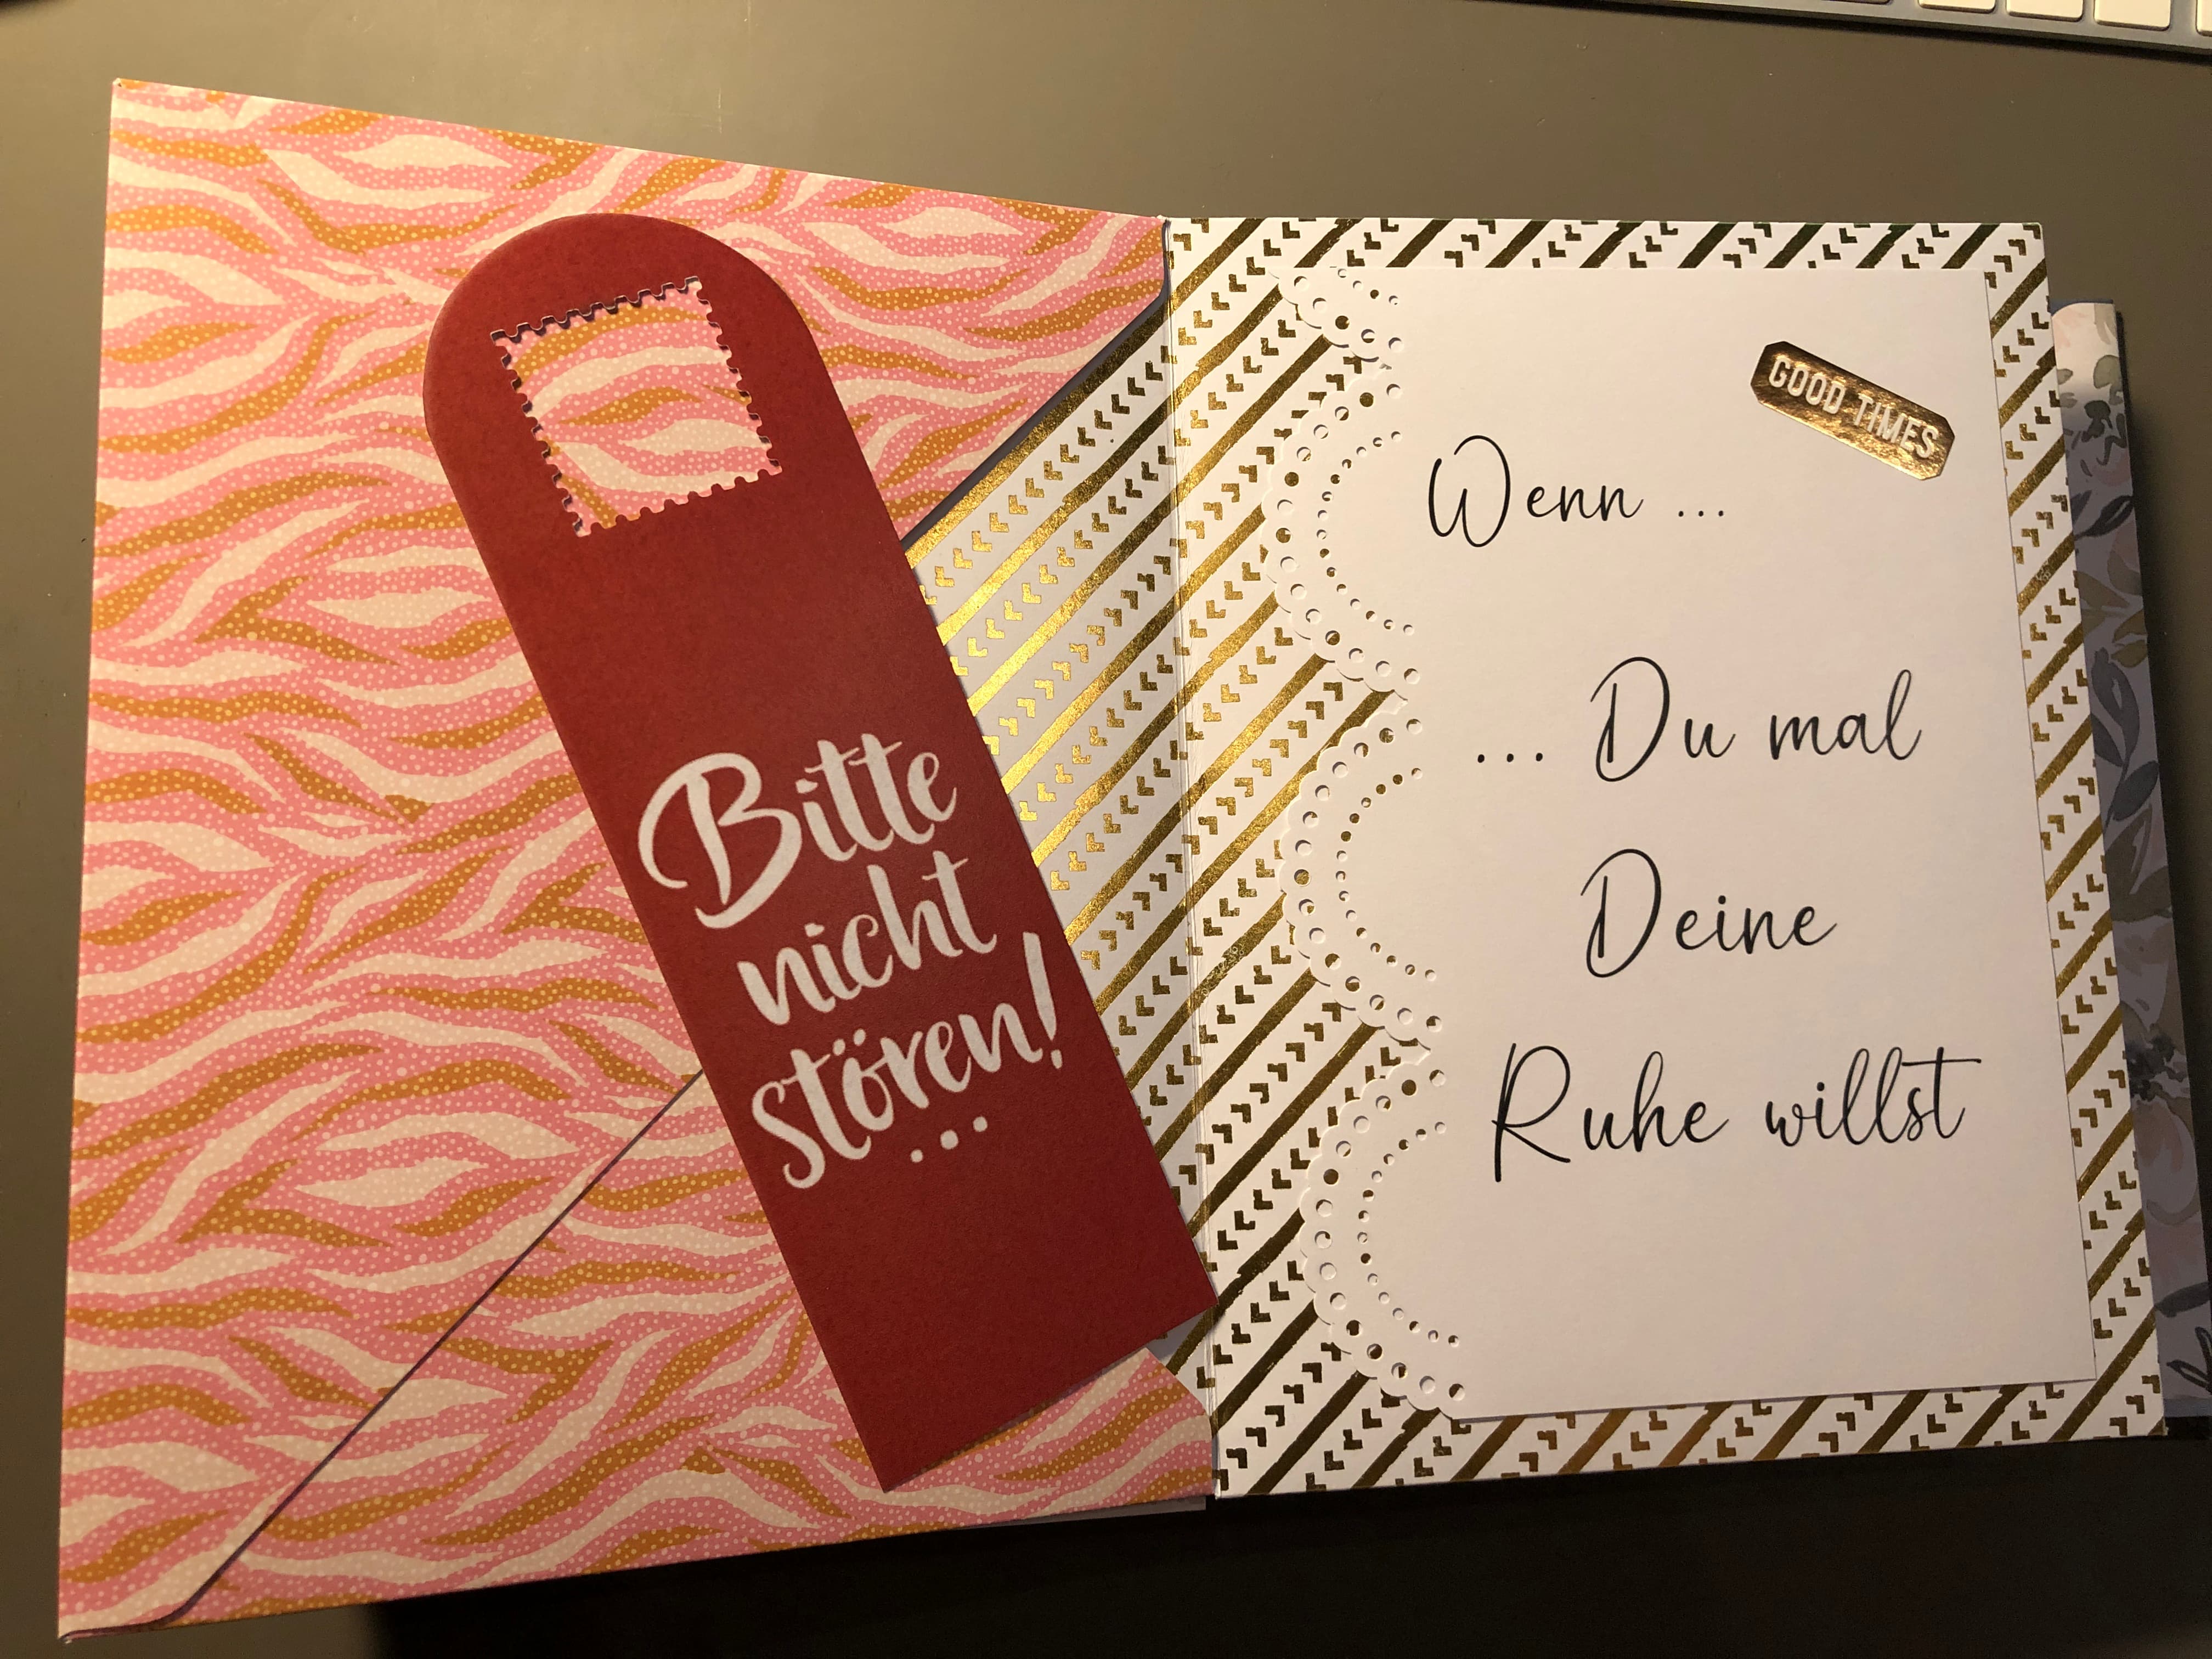 Bitte
nicht
stören!
...
GOOD TIMES
Wenn ...
... Du mal
Deine
Ruhe willst